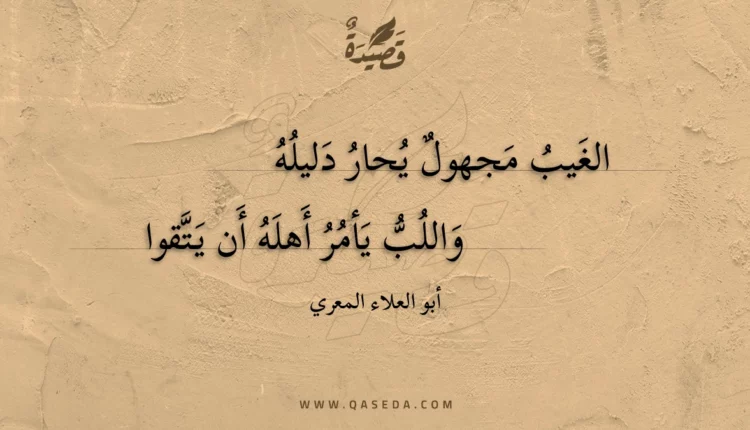 قَصِيدَةٌ
الغَيبُ مَجهولٌ يُحارُ دَليلُهُ
وَاللُبُّ يَأمُرُ أَهلَهُ أَن يَتَّقوا
أبو العلاء المعري
WWW.QASEDA.COM